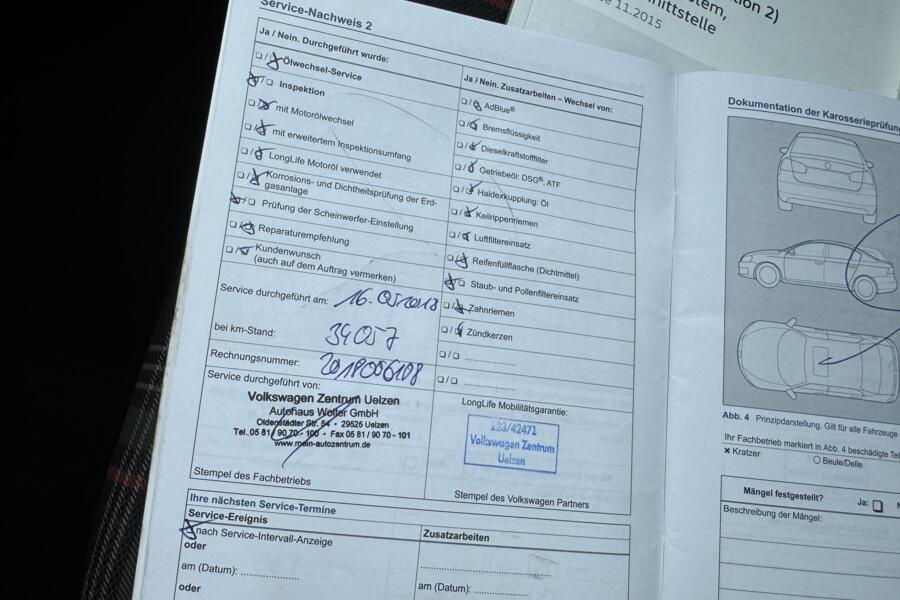 Service-Nachweis 2
Ja / Nein. Durchgeführt wurde:
□/□ Ölwechsel-Service
□/□ Inspektion
□/□ mit Motorölwechsel
□/□ mit erweitertem Inspektionsumfang
□/□ LongLife Motoröl verwendet
□/□ Korrosions- und Dichtheitsprüfung der Erd-
gasanlage
□/□ Prüfung der Scheinwerfer-Einstellung
□/□ Reparaturempfehlung
□/□ Kundenwunsch
(auch auf dem Auftrag vermerken)
Service durchgeführt am: 16.05.2018
bei km-Stand: 34057
Rechnungsnummer:
Service durchgeführt von:
Volkswagen Zentrum Uelzen
Autohaus Wolter GmbH
Oldenstädter Str. 54 • 29525 Uelzen
Tel. 05 81 / 90 70 - 100 • Fax 05 81 / 90 70 - 101
www.mein-autozentrum.de
Stempel des Fachbetriebs
Ja / Nein. Zusatzarbeiten – Wechsel von:
□/□ AdBlue®
□/□ Bremsflüssigkeit
□/□ Dieselkraftstofffilter
□/□ Getriebeöl: DSG®, ATF
□/□ Haldexkupplung: Öl
□/□ Keilrippenriemen
□/□ Luftfiltereinsatz
□/□ Reifenfüllflasche (Dichtmittel)
□/□ Staub- und Pollenfiltereinsatz
□/□ Zahnriemen
□/□ Zündkerzen
□/□ ....................
□/□ ....................
LongLife Mobilitätsgarantie:
123/42471
Volkswagen Zentrum
Uelzen
Stempel des Volkswagen Partners
Ihre nächsten Service-Termine
Service-Ereignis
nach Service-Intervall-Anzeige
oder
am (Datum): ....................
oder
Zusatzarbeiten
am (Datum): ....................
11.2015
Dokumentation der Karosserieprüfung
Abb. 4 Prinzipdarstellung. Gilt für alle Fahrzeuge
Ihr Fachbetrieb markiert in Abb. 4 beschädigte
× Kratzer
○ Beule/Delle
Mängel festgestellt? Ja: □
Beschreibung der Mängel: